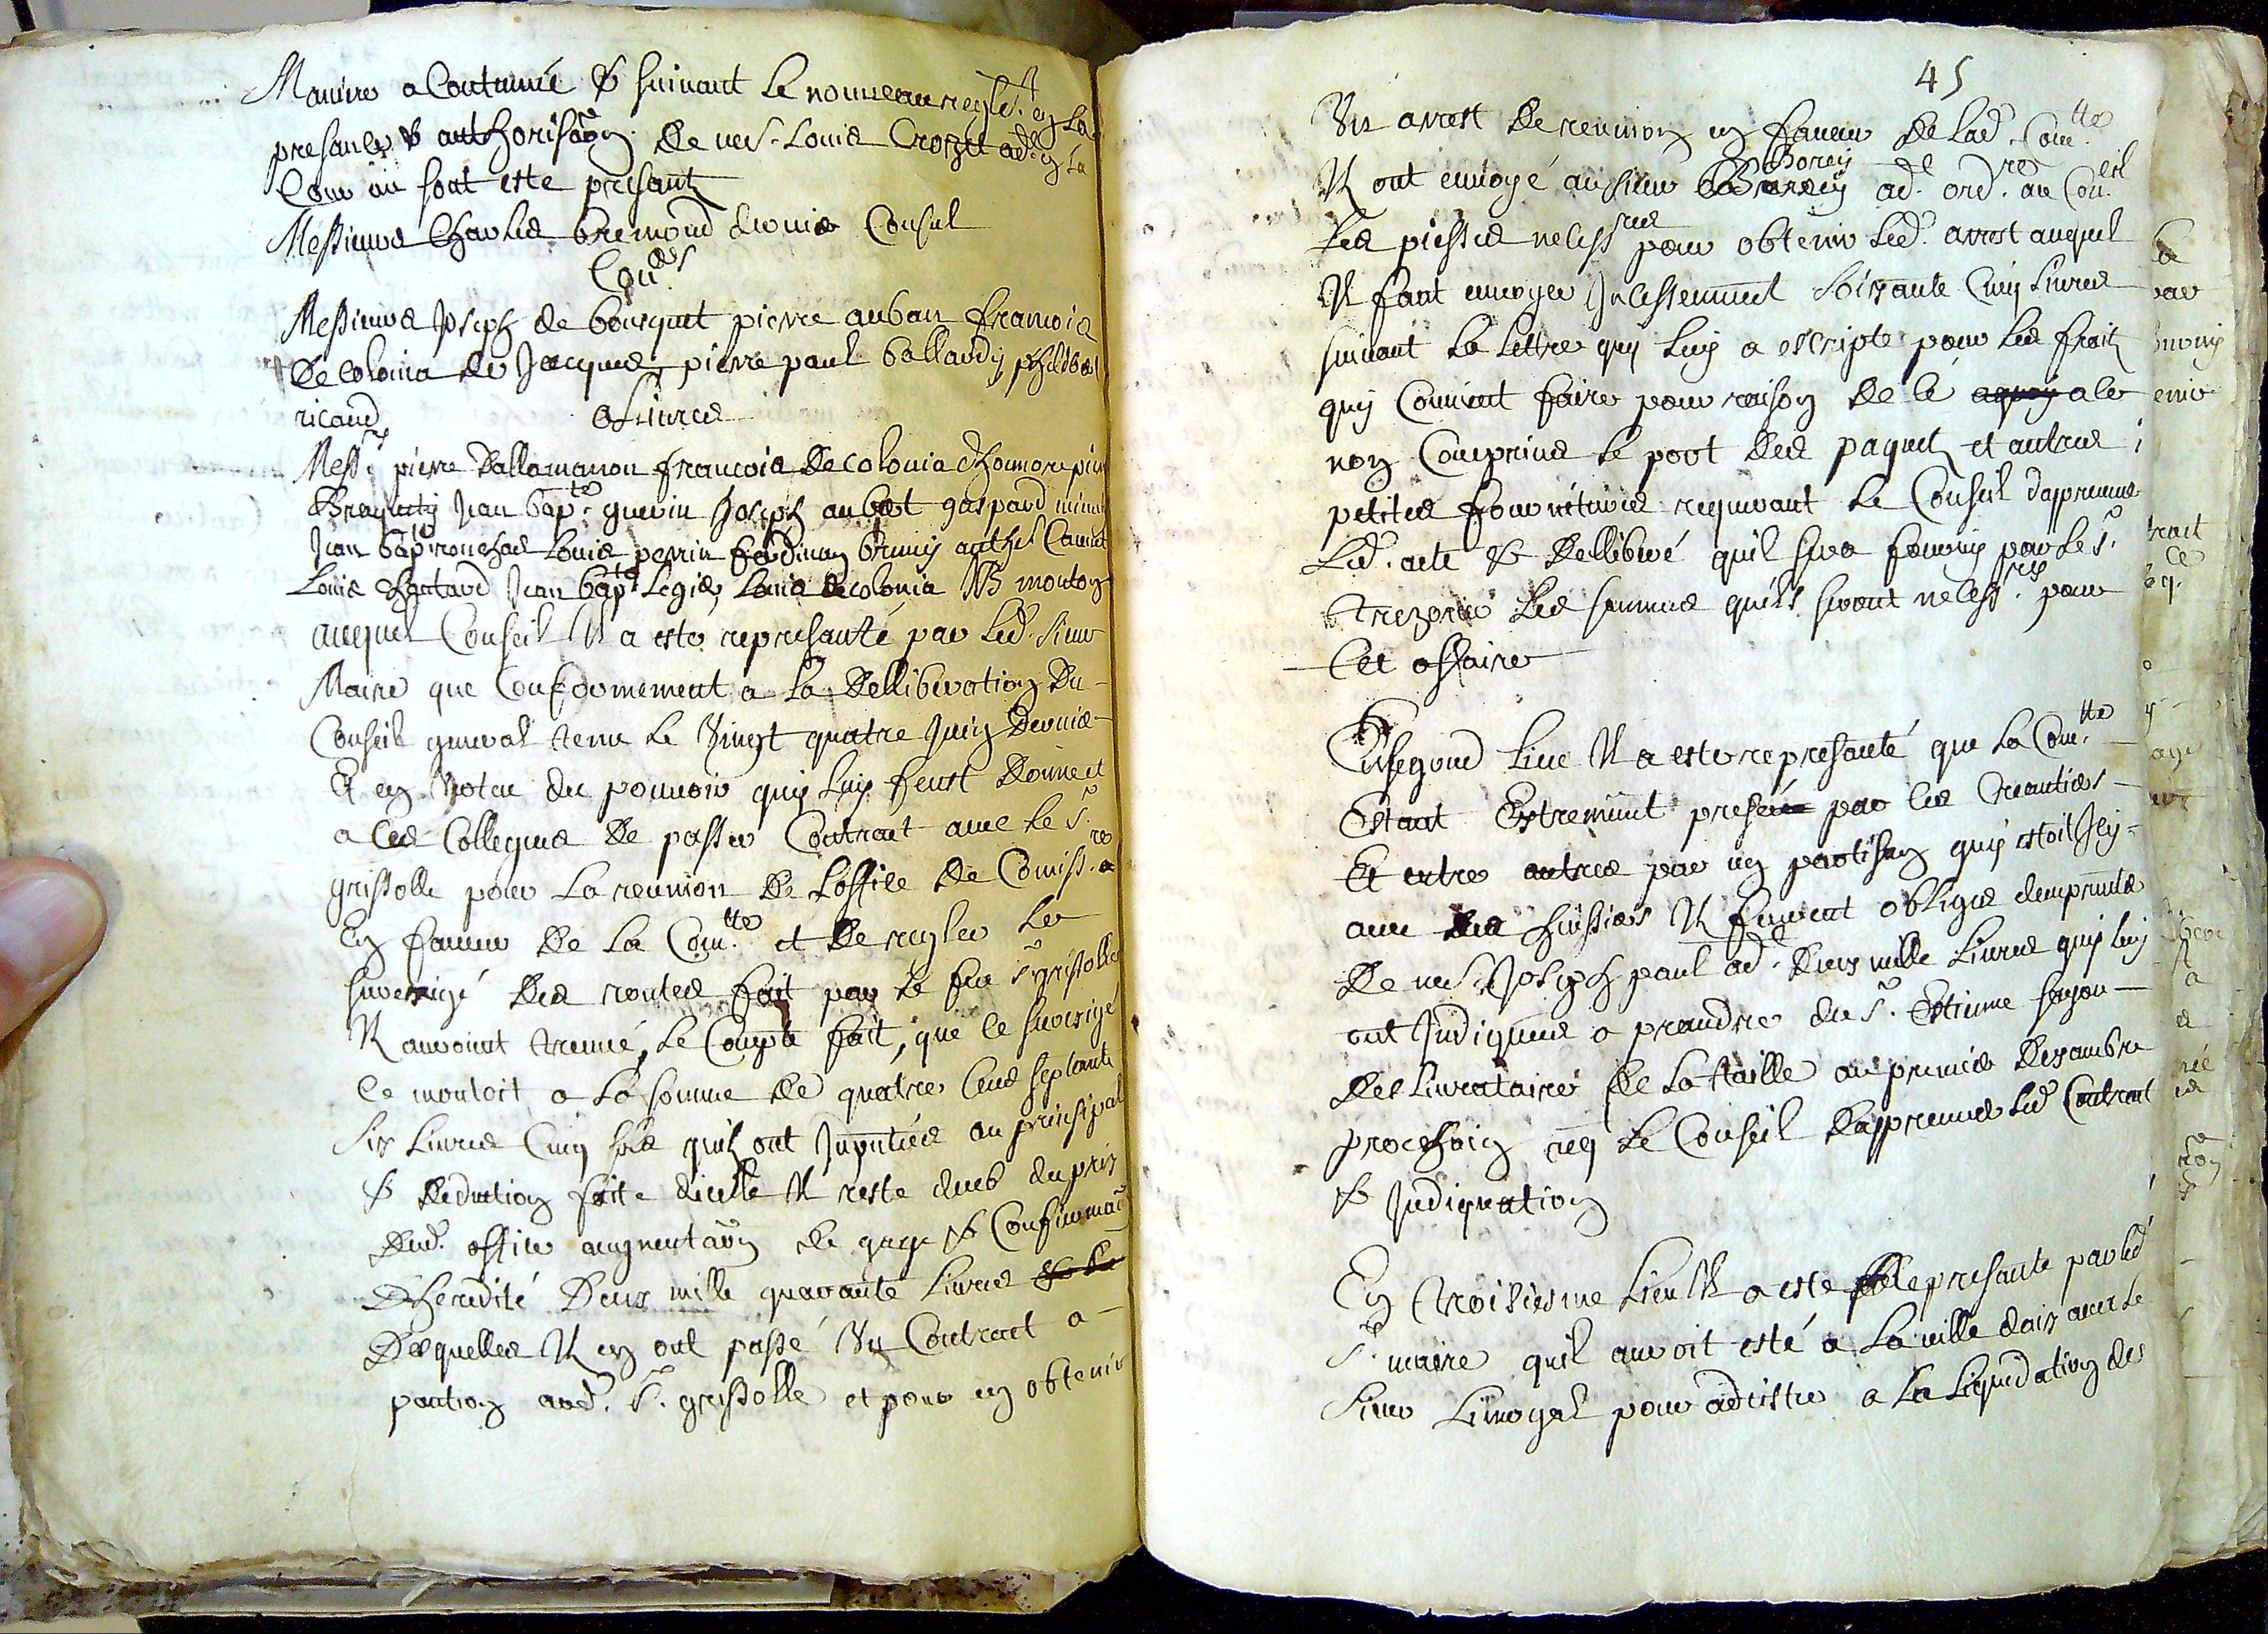 Maniere a Coutumée & suivant Le nouveau regle.t en La
presance & authorisāon De me S. Louis Crozet ad.t en La
Cour ou sont este presantz
Messieurs Charles bremond dernier Consul
Con.rs
Messieurs Joseph de bousquet pierre auban francois
De Colonia de Jacques pierre paul ballardy philibert
ricaud olivier
Mess.rs pierre Dallamanon francois De Colonia dhonnore pierre
Jean bap.te guerin Joseph aubert gaspard
Jean bap.te Louis perrin ferdinan brunij
Louis Chautard Jean bap.te Legier, Louis de colonia monton
auquel Conseil Il a esté representé par Led. sieur
Maire que Conformement a La Delliberation Du
Conseil general tenu Le Vingt quatre Juin Dernier
Et en Voteu du pouvoir quy luy feust Donne et
a Ces Collegues De passer Contract avec Le S.r
grissolle pour La reunion De Loffice De Comiss.re a
En faveur De La Com.tte et De regler Le
surexigé Des rontes fait par Le feu S.r grissolle
Il auroint treuvé, Le Compte fait, que Le surexigé
Ce montoit a La somme De quatre Cens septante
Six Livres Cinq sols quilz ont Imputées au prinsipal
& Deduction faite dicelle Il reste deub du pris
Dud. office augmentāon de gage & Confirmāon
Dheredité Deux mille quarante Livres
Desquelles Il en ont passé Un Contract a
pantion aud. S.r grissolle et pour en obtenir
45
Un arrest De reunion en faveur De Lad. Com.tte
Il ont envoyé au sieur Borey ad.t ord.re au Con.eil
Les piesses necess.res pour obtenir Led. arrest auquel
Il faut envoyer Incessemment Soixante Cinq Livres
suivant La Lettre quy Luy a escripte pour Les fraitz
quy Convient faire pour raison De Ce a Ce
non Comprins Le port Des paquetz et autres
petites fournitures requerant Le Conseil dapreuver
Led. acte & Dellibéré quil sera fourny par Le S.r
trezorier Les sommes quils seront necess.res pour
Cet affaire
En Segond Lieu Il a esté representé que La Com.tte
Estant Extremement pressée par Les Creantiers
Et entre autres par un partisan quy estoit Icy
avec Des huissiers Il feurent obliges demprunter
De me S. Joseph paul ad.t Deux mille Livres quy Luy
ont Indiquées a prandre du S.r Estienne fayon
Deslivrataire De La taille au premier Dexambre
prochain req Le Conseil Dapreuver Led Contract
& Indiquation
En troisiesme Lieu Il a este representé par Led
S.r maire quil auroit esté a La ville daix avec Le
Sieur Limogal pour adcister a La Liquidation des